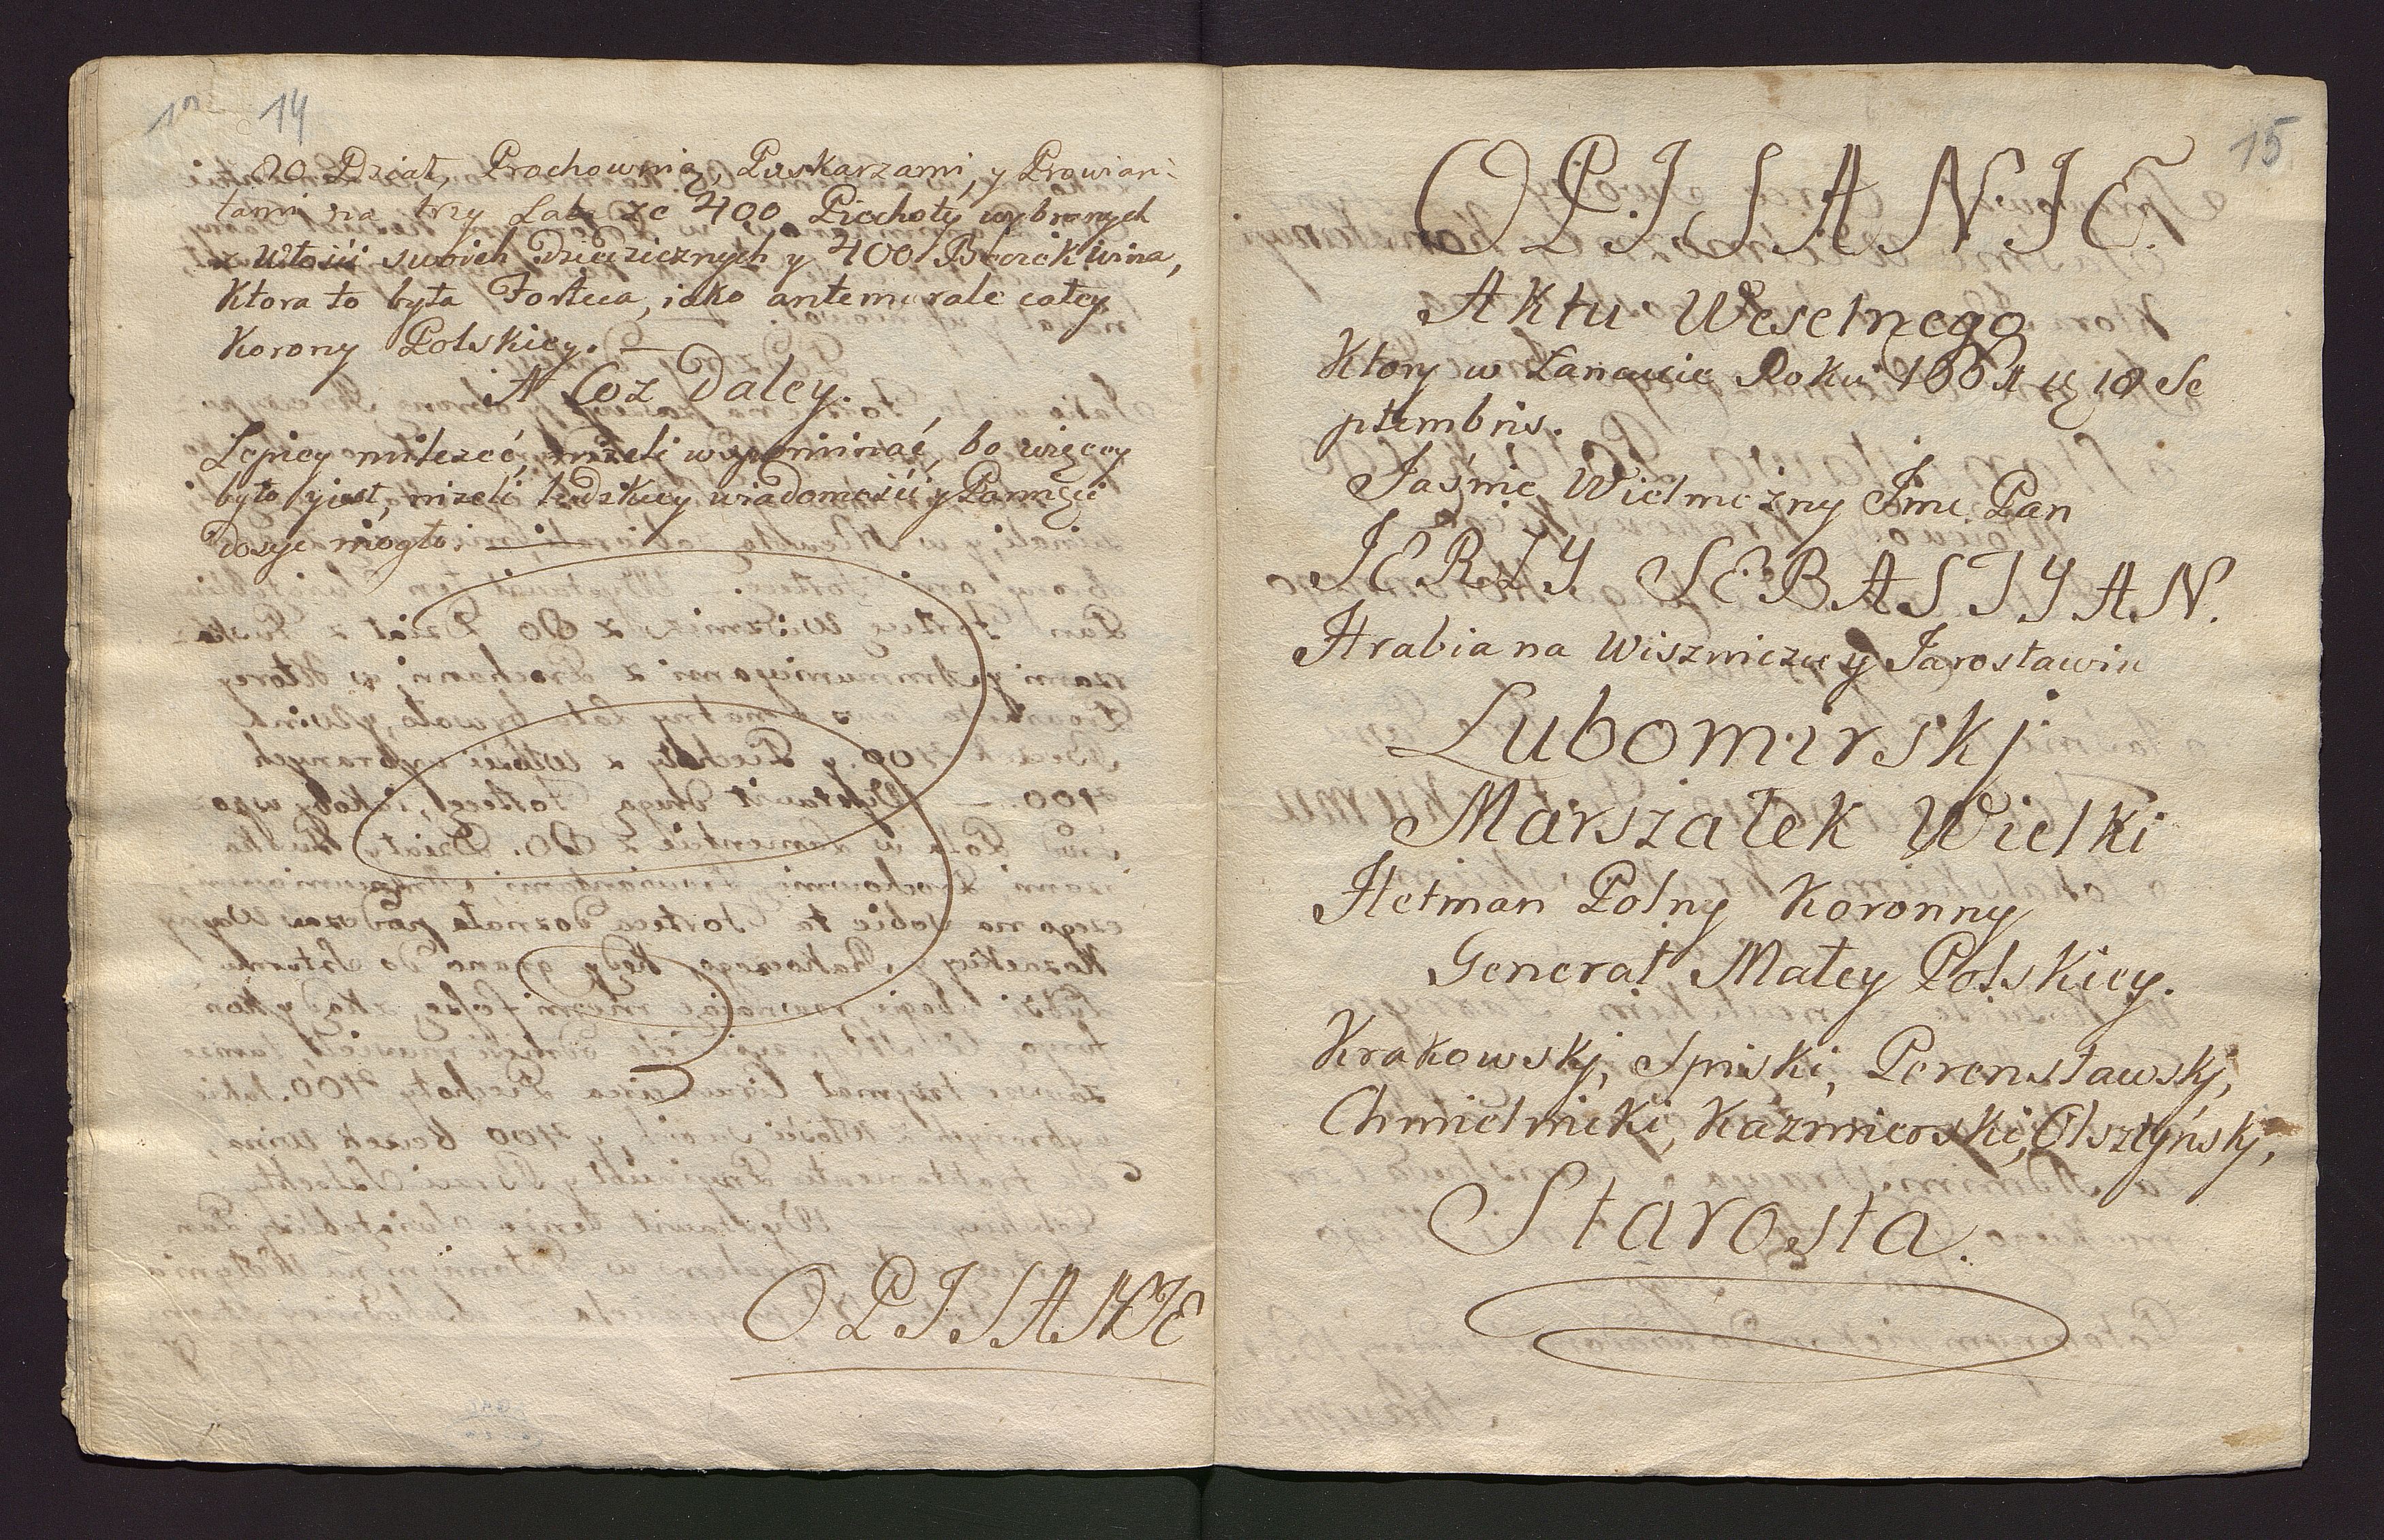 14
80 Dział, Prochownią, Puskarzami, y Prowian-
tami na trzy Lata ze 400 Piechoty wybranych
z Włości swoich Dziedzicznych y 400 Beczek wina,
Ktora to była Forteca, iako antemurale całey
Korony Polskiey.
A Coz Daley.
Lepiey milczeć, niżeli wspominać, bo więcey
było y jest, niżeli ludzkiey wiadomości y Pamięci
dosyc mogło.
OPISANIE
15
OPISANIE.
Aktu Weselnego
Ktory w Lancucie Roku 1661 18 Se
ptembris.
Jaśnie Wielmożny Jmc. Pan
JERZY SEBASTYAN.
Hrabia na Wiszniczu y Jarosławiu
Lubomirskj
Marszałek Wielki
Hetman Polny Koronny
Generał Małey Polskiey.
Krakowskj, Spiski, Pereasławskj,
Chmielnicki, Kaźmierski, Olsztyńskj,
Starosta.